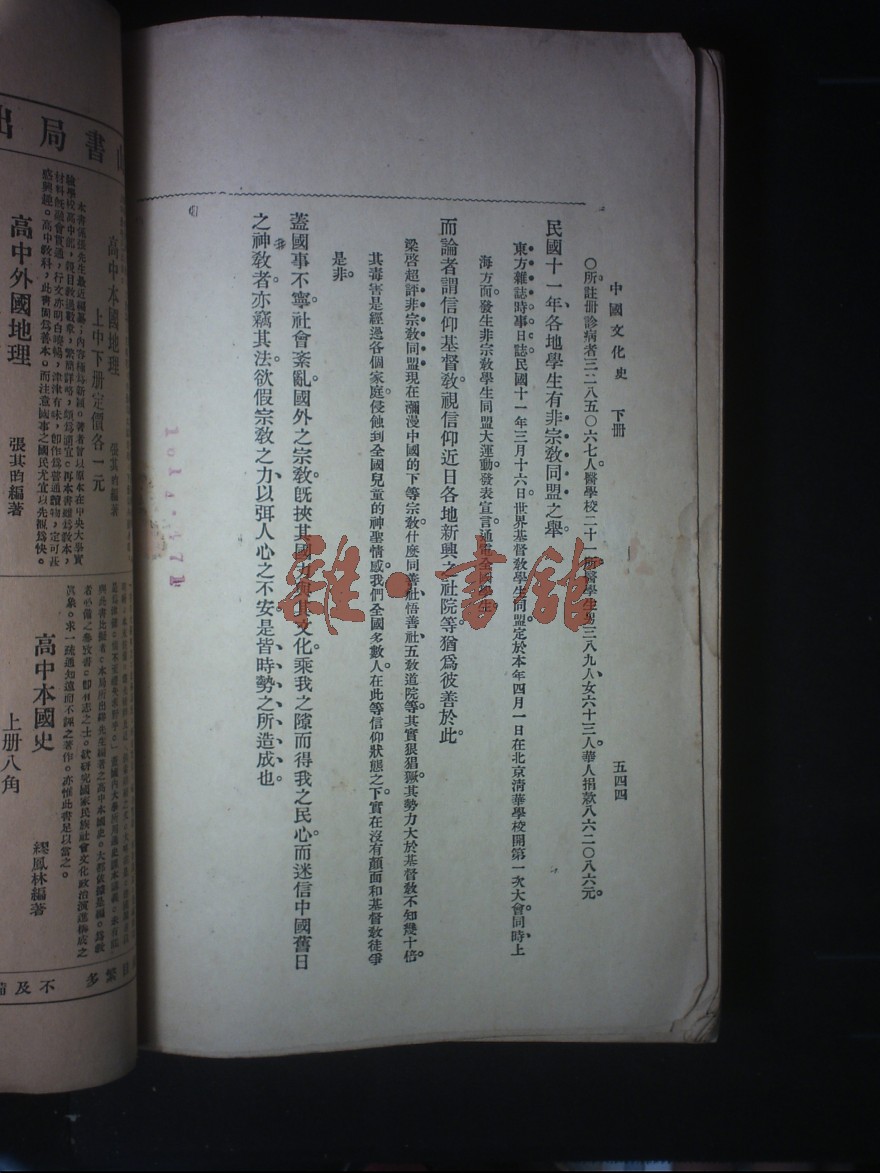 中國文化史　下册　五四四
○所註册診病者三二八五○六七人醫學校二十一所醫學生男三八九人女六十三人華人捐款八六二○八六元。
民國十一年、各地學生有非宗教同盟之舉。
東方雜誌時事日誌民國十一年三月十六日世界基督教學生同盟定於本年四月一日在北京清華學校開第一次大會同時上
海方面發生非宗教學生同盟大運動發表宣言通電全國學生。
而論者謂信仰基督教視信仰近日各地新興之社院等猶爲彼善於此。
梁啓超評非宗教同盟現在瀰漫中國的下等宗教什麽同善社悟善社五教道院等。其實狠猖獗其勢力大於基督教不知幾十倍。
其毒害是經過各個家庭侵蝕到全國兒童的神聖情感我們全國多數人在此等信仰狀態之下實在沒有顏面和基督教徒爭
是非。
蓋國事不寧社會紊亂國外之宗教。既挾其國力與其文化乘我之隙而得我之民心而迷信中國舊日
之神教者。亦竊其法欲假宗教之力以弭人心之不安是皆時勢之所造成也。
雜·書館
書局出
高中本國地理　張其昀編著
上中下册定價各一元
高中外國地理　張其昀編著
高中本國史　繆鳳林編著
上册八角
繁多　不及備